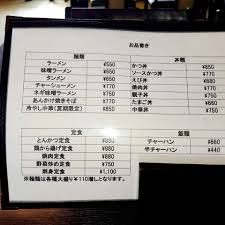 お品書き
麺類
ラーメン ¥550
味噌ラーメン ¥660
タンメン ¥660
チャーシューメン ¥770
ネギ味噌ラーメン ¥770
あんかけ焼きそば ¥770
冷やし中華(夏期限定) ¥770
丼類
かつ丼 ¥850
ソースかつ丼 ¥850
えび丼 ¥880
焼肉丼 ¥770
親子丼 ¥750
たまご丼 ¥660
中華丼 ¥750
定食
とんかつ定食 ¥980
鶏から揚げ定食 ¥980
焼肉定食 ¥880
野菜炒め定食 ¥750
刺身定食 ¥1,100
※麺類は各種大盛り¥110増しとなります。
飯類
チャーハン ¥660
半チャーハン ¥440